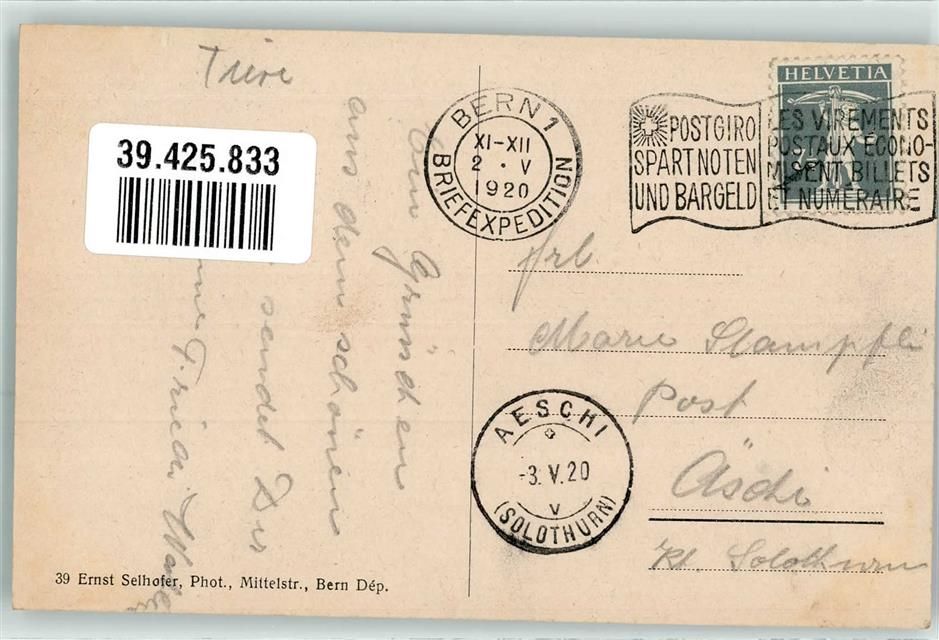 Treve
39.425.833
Ein Grüsschen
aus dem schönen
sendet Dir
Frieda
39 Ernst Selhofer, Phot., Mittelstr., Bern Dép.
BERN 1
XI-XII
2 · V
1920
BRIEFEXPEDITION
POSTGIRO
SPART NOTEN
UND BARGELD
LES VIREMENTS
POSTAUX ÉCONO-
MISENT BILLETS
ET NUMÉRAIRE
HELVETIA
Frl.
Marie Stampfli
Post
Äschi
Kt. Solothurn
AESCHI
-3.V.20
V
(SOLOTHURN)